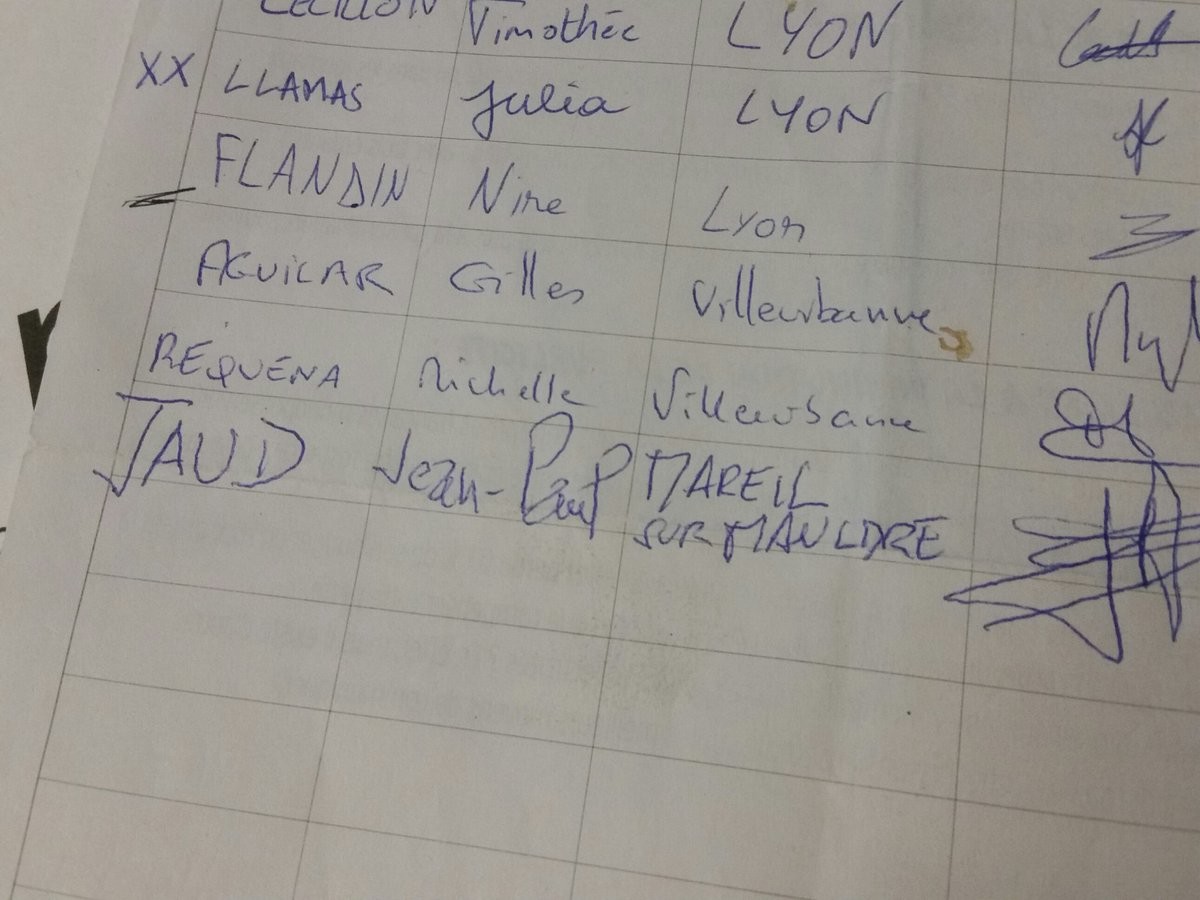 CECILLON Timothée LYON
XX LLAMAS Julia LYON
FLANDIN Nine Lyon
AGUILAR Gilles Villeurbanne
REQUENA Michelle Villeurbanne
JAUD Jean-Paul MAREIL
SUR MAULDRE